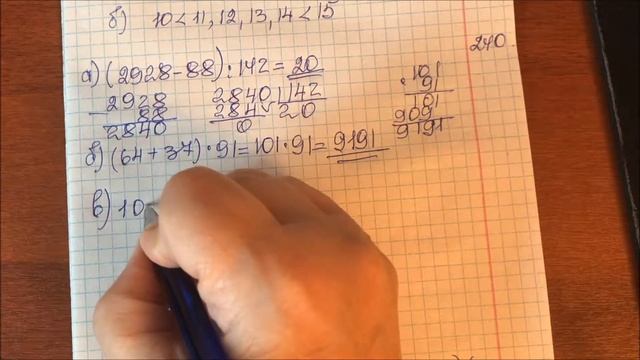 б) 10 < 11, 12, 13, 14 < 15
240.
а) (2928-88) : 142 = 20
- 2928
88
2840
2840 142
284 20
0
101
· 91
101
909
9191
б) (64+37) · 91 = 101 · 91 = 9191
в) 10